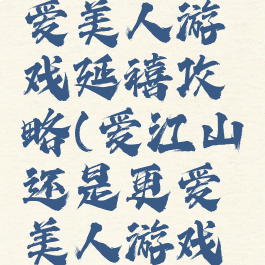 爱美人游
戏延禧攻
略(爱江山
还是更爱
美人游戏